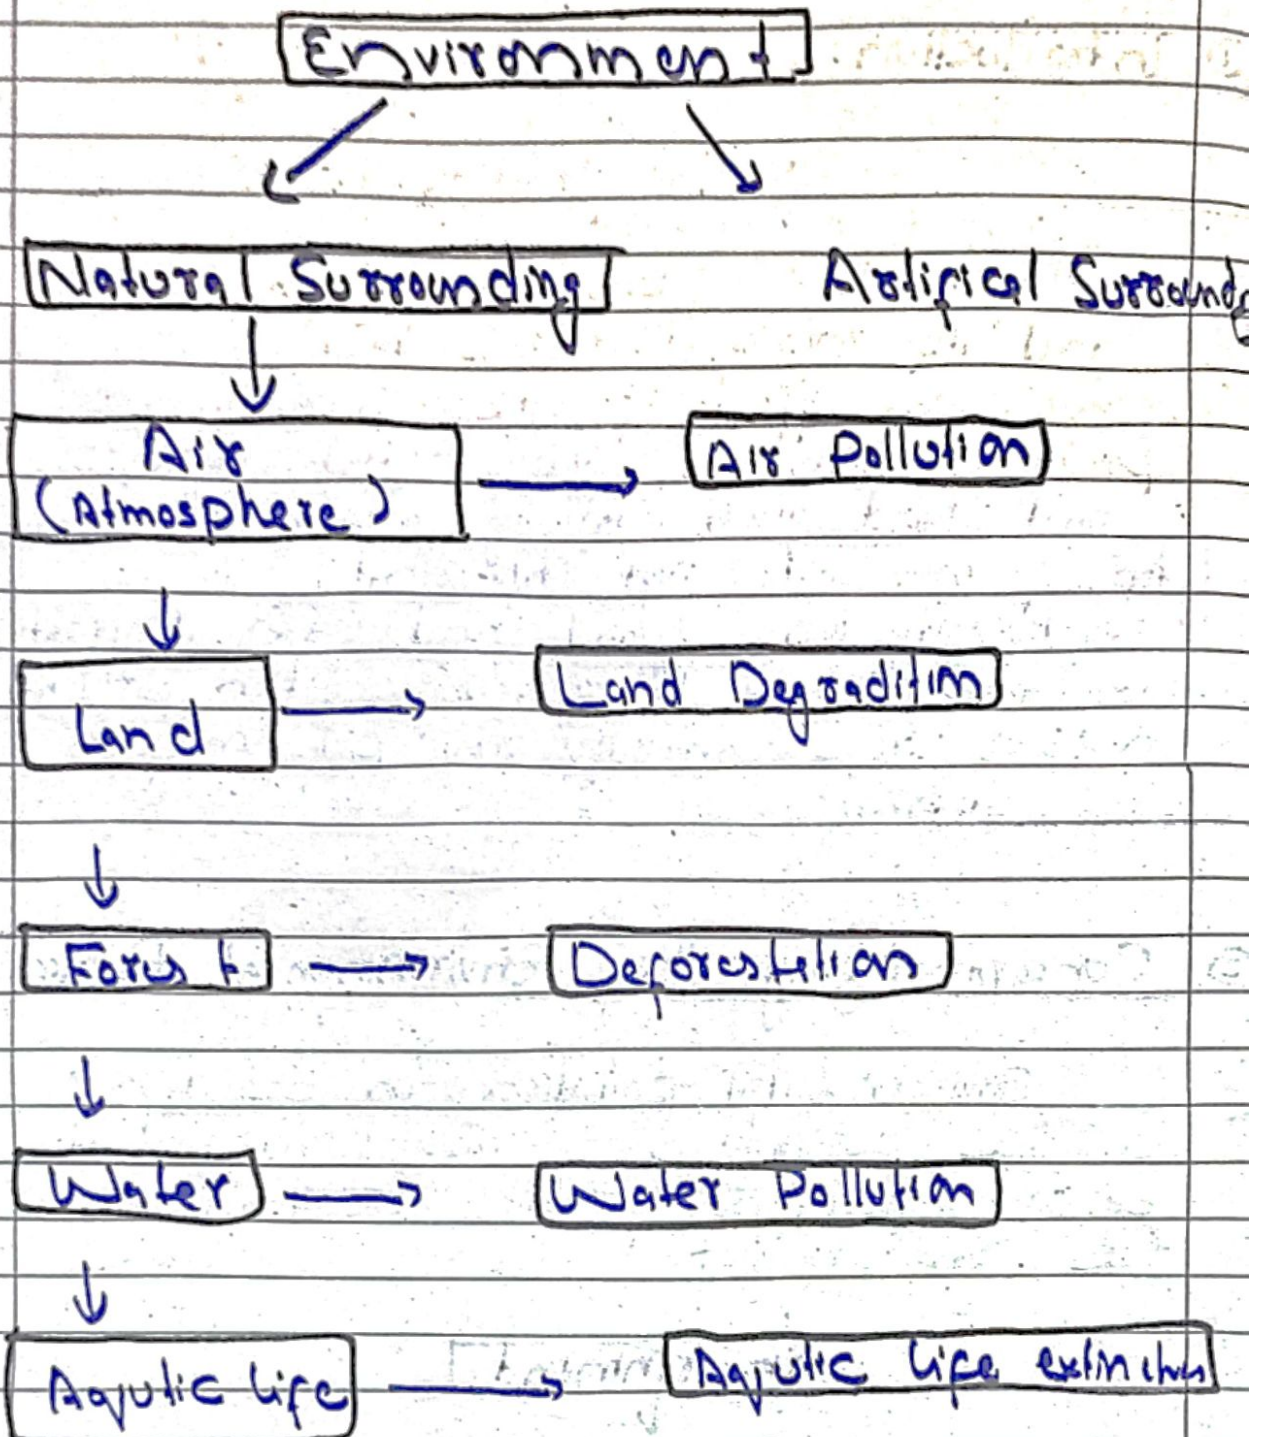 Environment
Natural Surrounding Artifical Surrounding
Air Air Pollution
(Atmosphere)
Land Degradition
Land
Forest Deforestation
Water Water Pollution
Aqutic life Aqutic life extinction